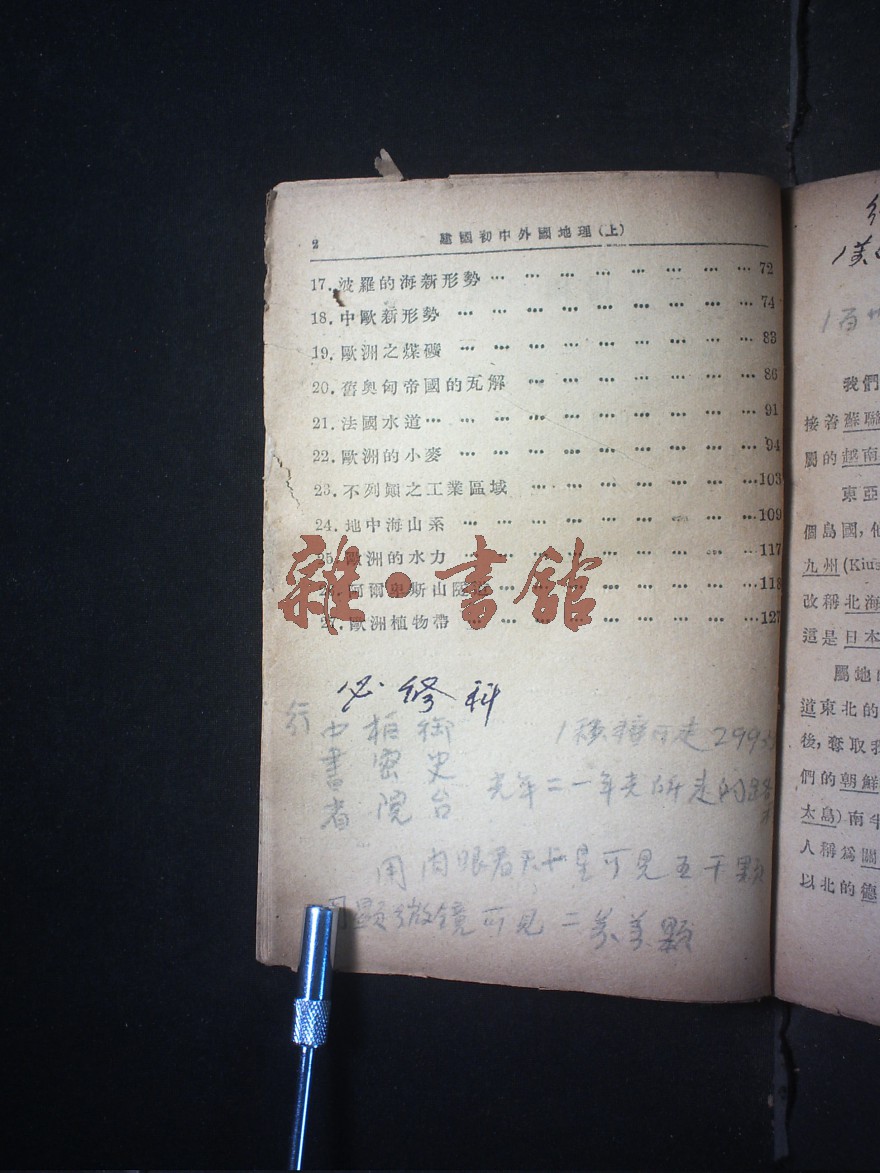 2 建國初中外國地理(上)
17.波羅的海新形勢 … … … … … … … … 72
18.中歐新形勢 … … … … … … … … … 74
19.歐洲之煤礦 … … … … … … … … … 83
20.舊奧匈帝國的瓦解 … … … … … … … 86
21.法國水道… … … … … … … … … … 91
22.歐洲的小麥 … … … … … … … … … 94
23.不列顛之工業區域 … … … … … … …103
24.地中海山系 … … … … … … … … …109
25.歐洲的水力 … … … … … … … … …117
26.阿爾卑斯山隧道 … … … … … … … …118
27.歐洲植物帶 … … … … … … … … …127
雜·書館
必修科
行
中書省
樞密院
御史台
光年二一年光所走的路
用肉眼看天上星可見五千顆
用顯微鏡可見二
顆
我們
接着蘇聯
屬的越南
東亞
個島國,他
九州(Kiu
改稱北海
這是日本
屬地
道東北的
後,奪取我
們的朝鮮
太島)南半
人稱爲關
以北的